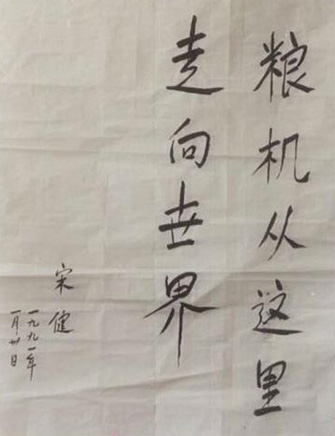 粮机从这里
走向世界
宋健
一九九一年
一月廿日